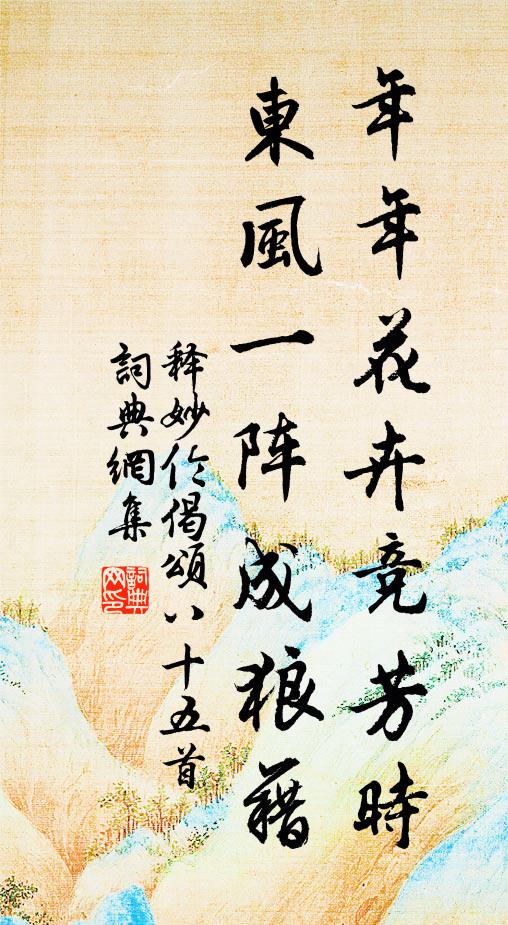 年年花卉竞芳時
東風一阵成狼藉
释妙伦偈頌八十五首
詞典網集
詞典
网印